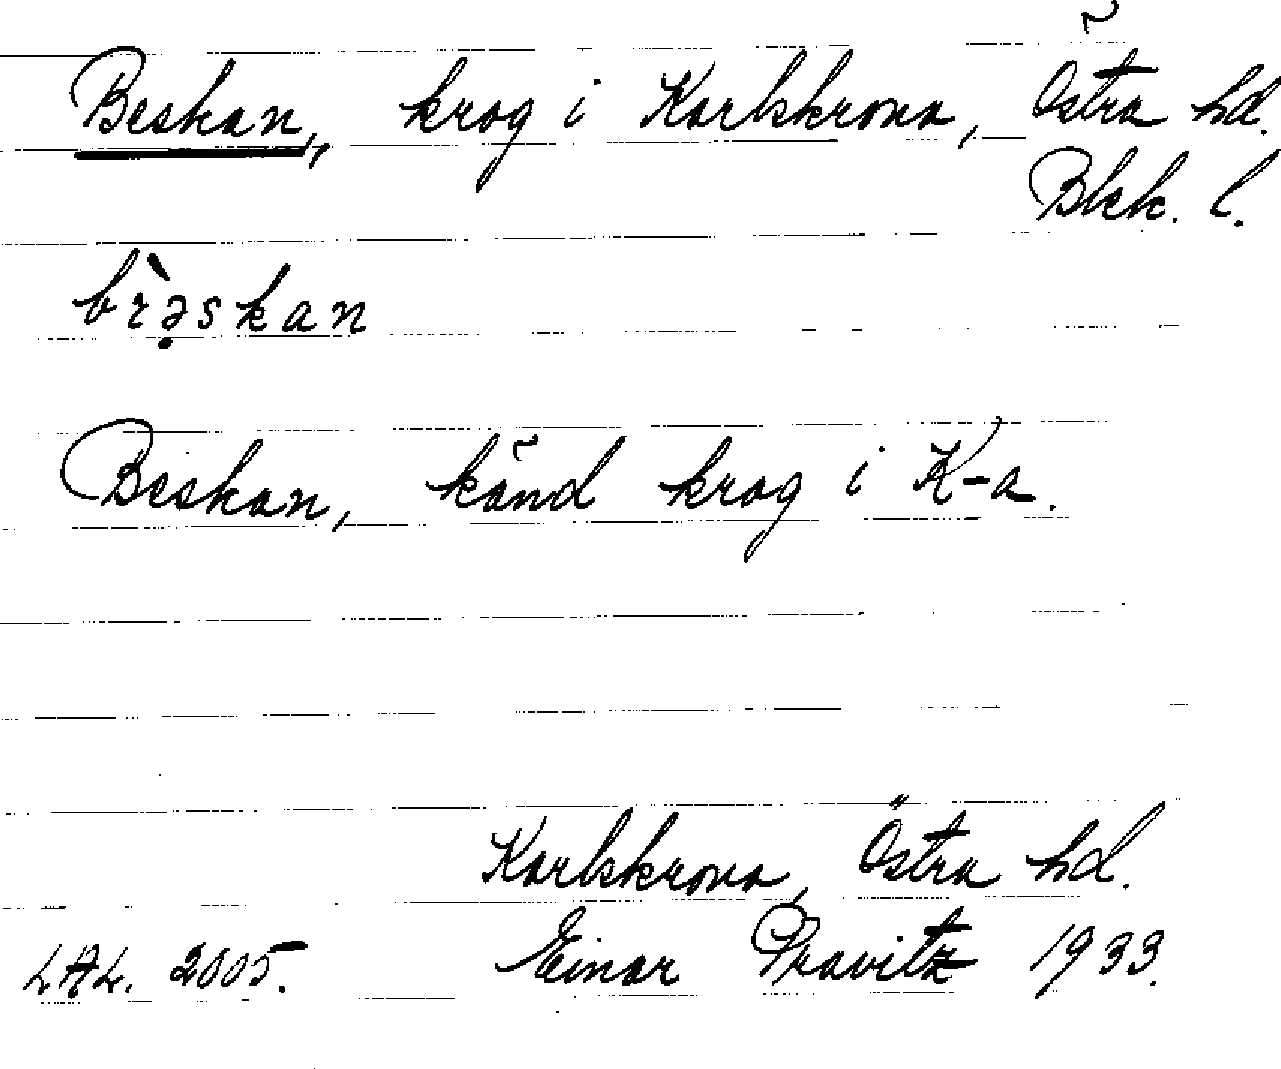 Beskan, krog i Karlskrona, Östra hd.
Blek. l.
Beskan, känd krog i K-a.
Karlskrona, Östra hd.
LAL. 2005. Einar Pravitz 1933.